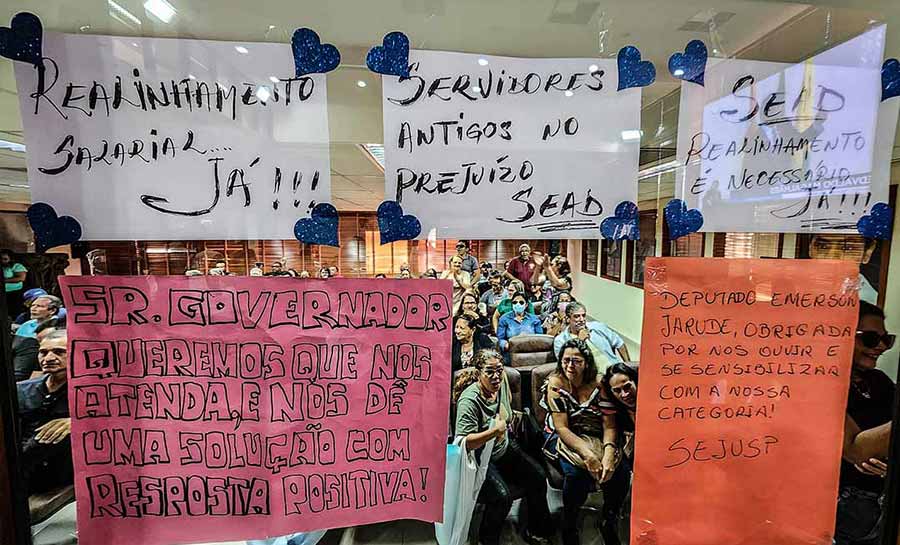 REALINHAMENTO
SALARIAL....
JÁ!!!
SERVIDORES
ANTIGOS NO
PREJUÍZO
SEAD
SEAD
REALINHAMENTO
É NECESSÁRIO
JÁ!!!
SR. GOVERNADOR
QUEREMOS QUE NOS
ATENDA, E NOS DÊ
UMA SOLUÇÃO COM
RESPOSTA POSITIVA!
DEPUTADO EMERSON
JARUDE, OBRIGADA
POR NOS OUVIR E
SE SENSIBILIZAR
COM A NOSSA
CATEGORIA!
SEJUSP